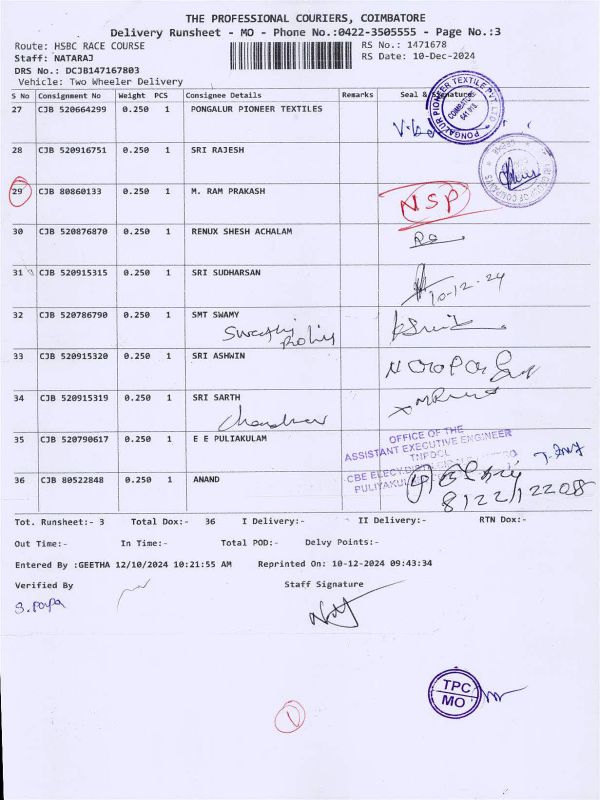 THE PROFESSIONAL COURIERS, COIMBATORE
Delivery Runsheet - MO - Phone No.:0422-3505555 - Page No.:3
Route: HSBC RACE COURSE RS No.: 1471678
Staff: NATARAJ RS Date: 10-Dec-2024
DRS No.: DCJB147167803
Vehicle: Two Wheeler Delivery
S No Consignment No Weight PCS Consignee Details Remarks Seal & Signature
27 CJB 520664299 0.250 1 PONGALUR PIONEER TEXTILES
PONGALUR PIONEER TEXTILE PVT LTD
COIMBATORE
28 CJB 520916751 0.250 1 SRI RAJESH
29 CJB 80860133 0.250 1 M. RAM PRAKASH NSP
30 CJB 520876870 0.250 1 RENUX SHESH ACHALAM
31 CJB 520915315 0.250 1 SRI SUDHARSAN 10-12-24
32 CJB 520786790 0.250 1 SMT SWAMY
33 CJB 520915320 0.250 1 SRI ASHWIN
34 CJB 520915319 0.250 1 SRI SARTH
35 CJB 520790617 0.250 1 E E PULIAKULAM
OFFICE OF THE
ASSISTANT EXECUTIVE ENGINEER
TNPDCL
36 CJB 80522848 0.250 1 ANAND
Tot. Runsheet:- 3 Total Dox:- 36 I Delivery:- II Delivery:- RTN Dox:-
Out Time:- In Time:- Total POD:- Delvy Points:-
Entered By :GEETHA 12/10/2024 10:21:55 AM Reprinted On: 10-12-2024 09:43:34
Verified By Staff Signature
TPC
MO
1